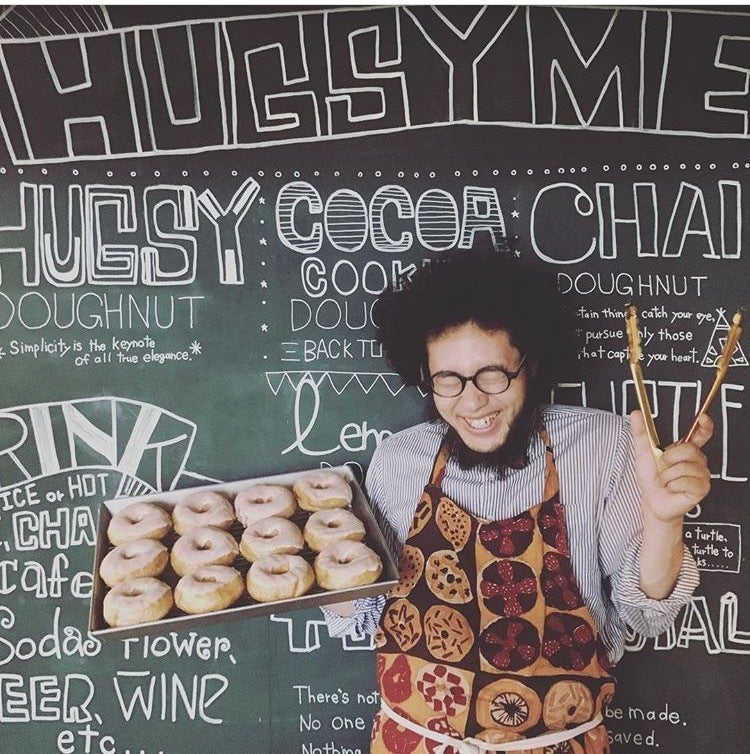 HUGSYME
HUGSY
DOUGHNUT
* Simplicity is the keynote
of all true elegance.*
COCOA
COOKI
DOU
BACK TO
CHAI
DOUGHNUT
tain thing catch your eye,
pursue only those
that capture your heart.
DRINK
ICE or HOT
CHA
Cafe
Sodas Flower,
BEER, WINE
etc...
lem
DO
TURTLE
a turtle,
turtle to
ks.....
There's not
No one
Nothing
AL
be made.
saved.